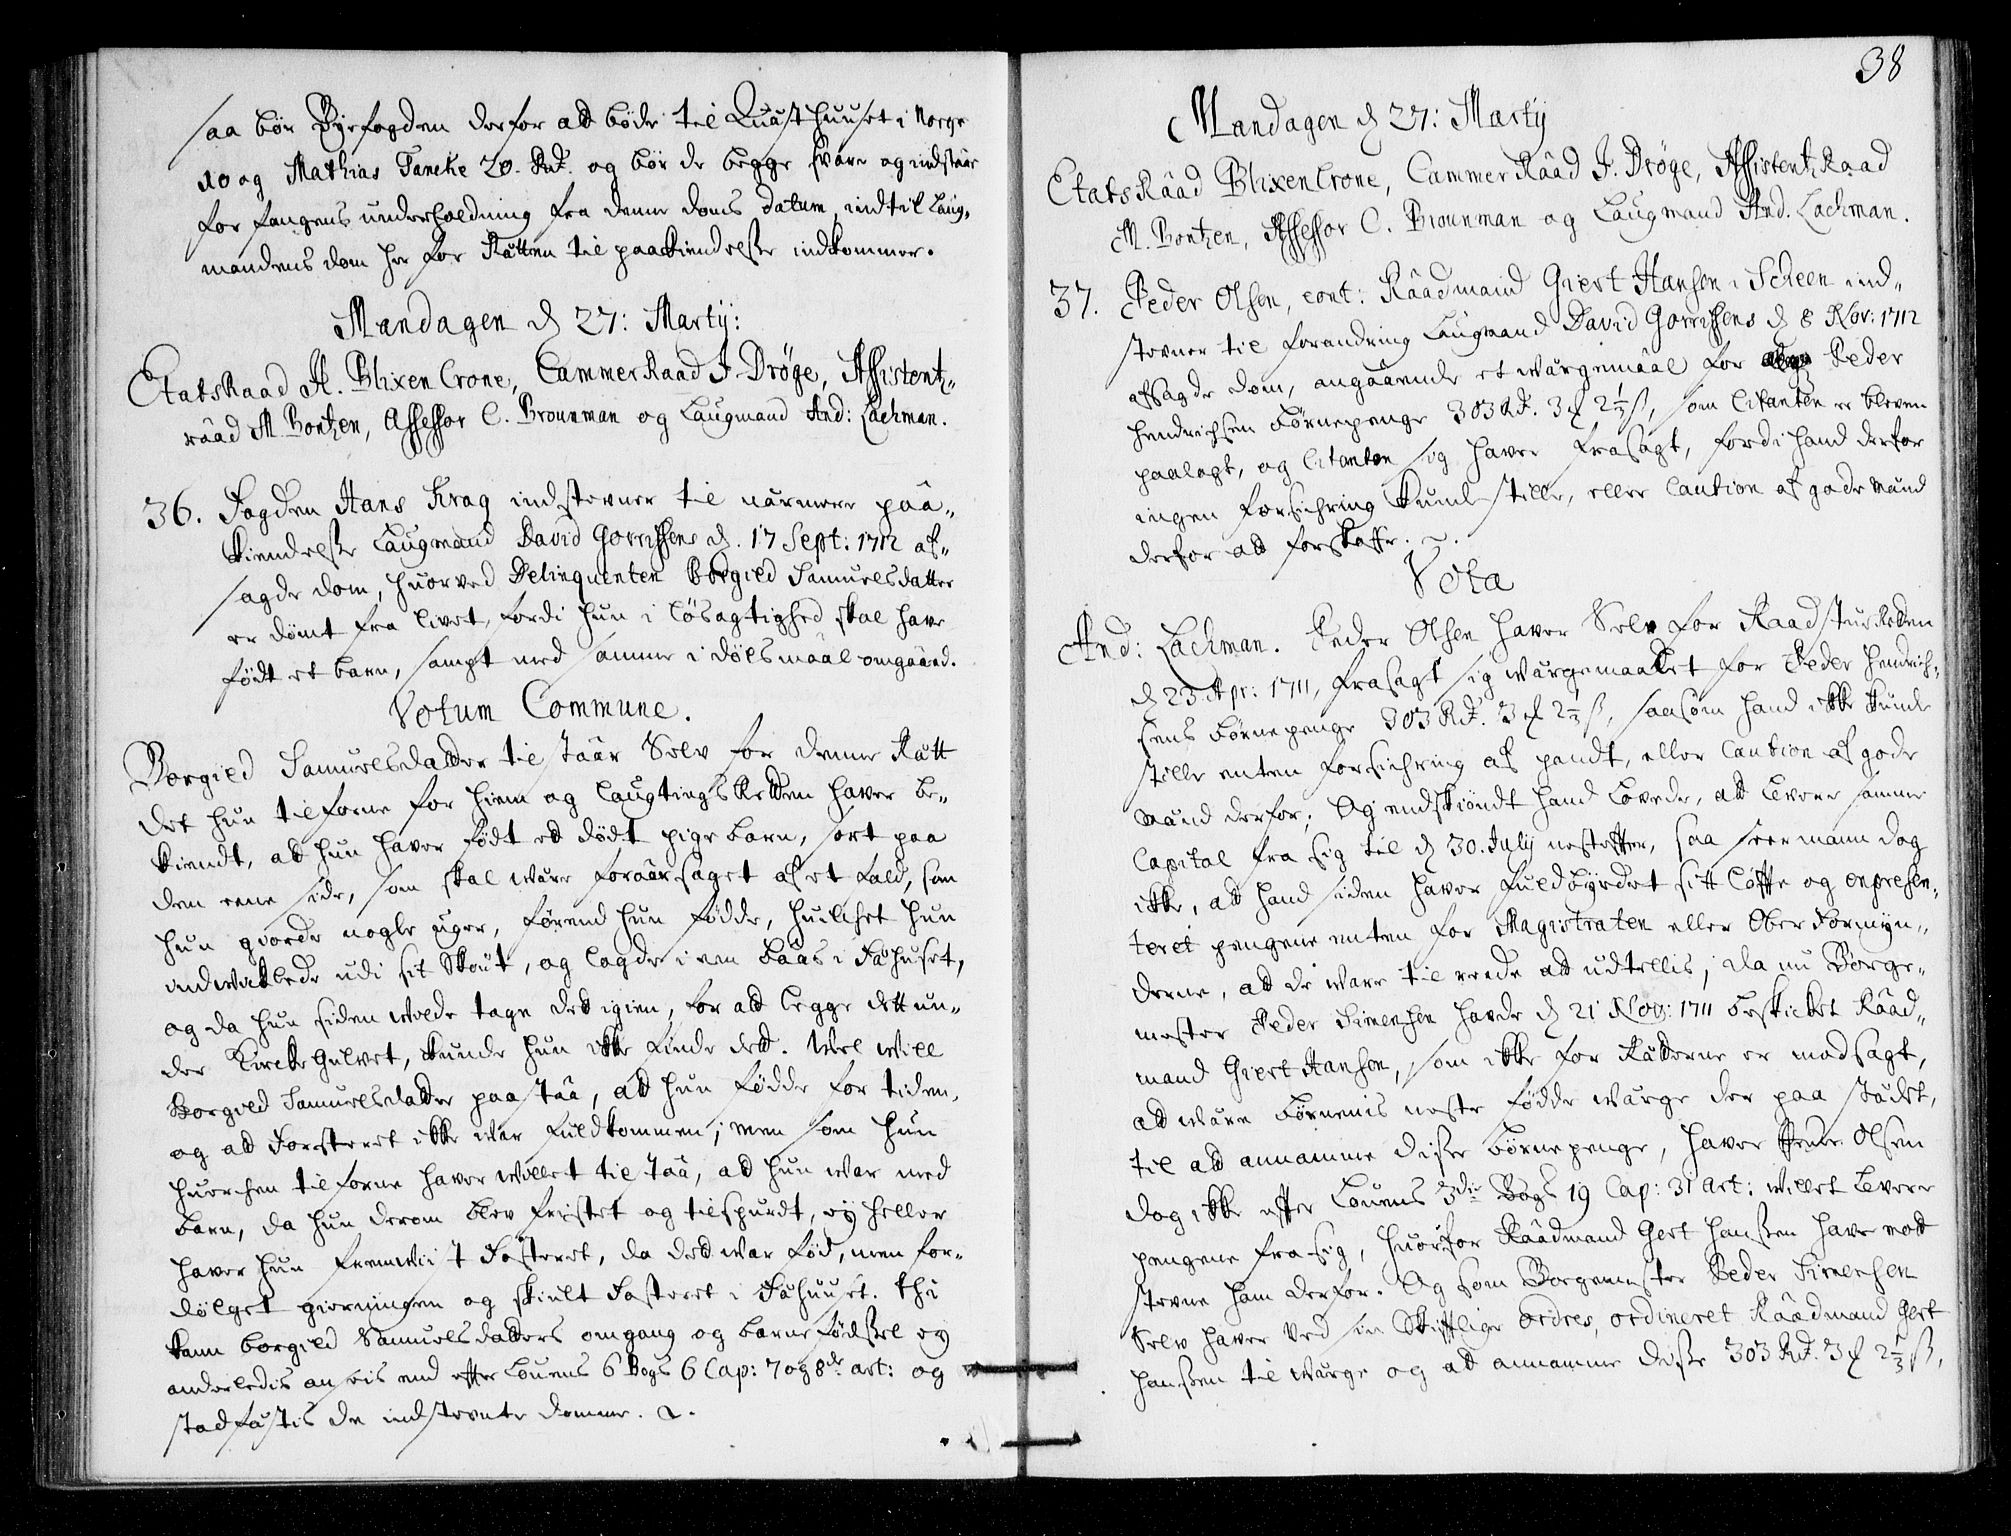 saa bør Byefogden derfor ad bøde til Quæsthuuset i Norge
10 og Mathias Tancke 20. Rd. og bør de begge svare og indstaae
for fangens underholdning fra denne doms datum, indtil Laug-
mandens dom her for Rætten til paakiendelse indkommer.
Mandagen d 27: Martij:
EtatsRaad H. Blixencrone, CammerRaad J. Dröge, Assistentz-
raad M. Bontzen, Assessor C. Brounman og Laugmand And: Lachman.
36. Fogden Hans Krag indstevner til nærmere paa-
kiendelse Laugmand David Gorrissens d. 17 Sept: 1712 af-
sagde dom, huorved Delinquenten Borgild Samuelsdatter
er dømt fra livet, fordi hun i løsagtighed skal have
født et barn, sampt med samme i dølsmaal omgaaed.
Votum Commune.
Borgild Samuelsdatter tilstaar Selv for denne Rætt
det hun tilforne for hiem og LaugtingsRetten haver be-
kiendt, ad hun haver født ed dødt pige barn, sort paa
den eene side, som skal være foraarsaget af et fald, som
hun giorde nogle uger, førend hun fødde, huilchet hun
indvicklede udi sit Skiøt, og lagde i een Baas i Fæhuset,
og da hun siden wolde tage det igien, for ad legge dett un-
der Kircke Gulvet, kunde hun icke finde dett. Wel will
Borgild Samuelsdatter paastaa, ad hun fødde for tiden,
og ad Fosteret icke war fuldkommen; men som hun
huorchen tilforne haver willet tilstaa, ad hun war med
barn, da hun derom blev fristet og tilspurdt, ey heller
haver hun fremwiist Fosteret, da det war fød, men for-
dølget gierningen og skiult Fosteret i Fæhuuset. Thi
kann Borgild Samuelsdatters omgang og barne fødsel ey
anderledis ansees end efter Louens 6 Bogs 6 Cap: 7 og 8de art: og
stadfæstis de indstevnte domme.
38
Mandagen d 27: Martij
EtatsRaad Blixencrone, CammerRaad J. Dröge, AssistentzRaad
M. Bontzen, Assessor C. Brounman og Laugmand And. Lachman.
37. Peder Olsen, cont: Raadmand Giert Hansen i Scheen ind-
stevner til forandring Laugmand David Gorrissens d 8 Nov: 1712
afsagde dom, angaaende et wærgemaal for Peder
Hendrichsen Børnepenge 303 Rd. 3 ₰ 2 1/3 ß, som Citanten er bleven
paalagt, og Citanten sig haver frasagt, fordi hand derfor
ingen forsichring kunde stille, eller Caution af gode mænd
derfor ad forskaffe.
Vota
And: Lachman. Peder Olsen haver Selv for RaadstueRetten
d 23 Apr: 1711, frasagt sig wærgemaalet for Peder Hendrich-
sens børnepenge 303 Rd. 3 ₰ 2 1/3 ß, saasom hand icke kunde
stille enten forsichring af pandt, eller Caution af gode
mænd derfor; Og endskiøndt hand Lovede, ad levere samme
Capital fra sig til d 30. July nestefter, saa seer mann dog
icke, ad hand siden haver fuldbyrdet sitt løfte og
teret pengene enten for Magistraten eller Ober Formyn-
derne, ad de ware til reede ad udtellis; da nu Borge-
mester Peder Simensen havde d 21 Nov: 1711 beskicket Raad-
mand Giert Hansen, som icke for Rætterne er modsagt,
ad være børnenis neste fødde wærge der paa stædet,
til ad annamme disse børnepenge, haver Peder Olsen
dog icke efter Louens 3die Bogs 19 Cap: 31 art: willet levere
pengene fra sig, huorfor Raadmand Gert Hanssen have
stevne ham derfor. Og som Borgemester Peder Simensen
Selv haver ved sin Skriftlige ordres, ordineret Raadmand Gert
Hanssen til wærge og ad annamme disse 303 Rd. 3 ₰ 2 1/3 ß,